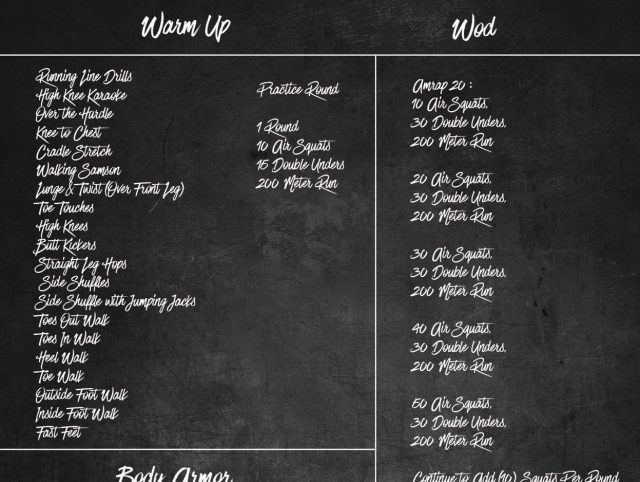 Warm Up
Running Line Drills
High Knee Karaoke
Over the Hardle
Knee to Chest
Cradle Stretch
Walking Samson
Lunge & Twist (Over Front Leg)
Toe Touches
High Knees
Butt Kickers
Straight Leg Hops
Side Shuffles
Side Shuffle with Jumping Jacks
Toes Out Walk
Toes In Walk
Heel Walk
Toe Walk
Outside Foot Walk
Inside Foot Walk
Fast Feet
Practice Round
1 Round
10 Air Squats
15 Double Unders
200 Meter Run
Body Armor
Wod
Amrap 20 :
10 Air Squats,
30 Double Unders,
200 Meter Run
20 Air Squats,
30 Double Unders,
200 Meter Run
30 Air Squats,
30 Double Unders,
200 Meter Run
40 Air Squats,
30 Double Unders,
200 Meter Run
50 Air Squats,
30 Double Unders,
200 Meter Run
Continue to Add (10) Squats Per Round